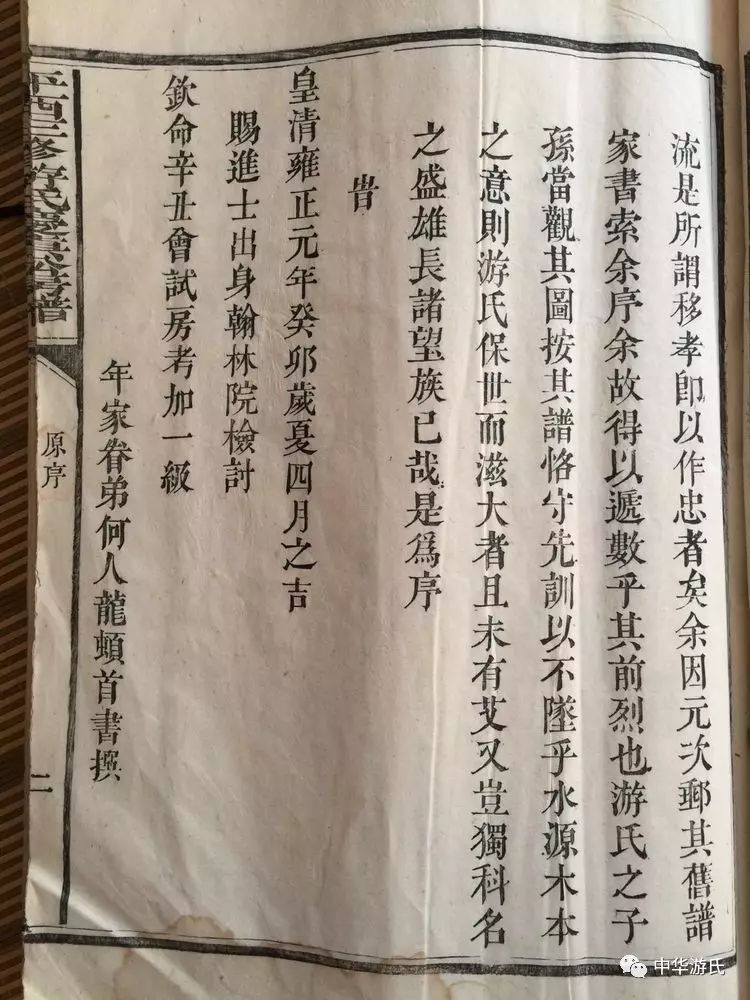 流是所謂移孝卽以作忠者矣余因元次郵其舊譜
家書索余序余故得以遞數乎其前烈也游氏之子
孫當觀其圖按其譜恪守先訓以不墜乎水源木本
之意則游氏保世而滋大者且未有艾又豈獨科名
之盛雄長諸望族已哉是爲序
旹
皇清雍正元年癸卯歲夏四月之吉
賜進士出身翰林院檢討
欽命辛丑會試房考加一級
年家眷弟何人龍頓首書撰
原序
二
中华游氏